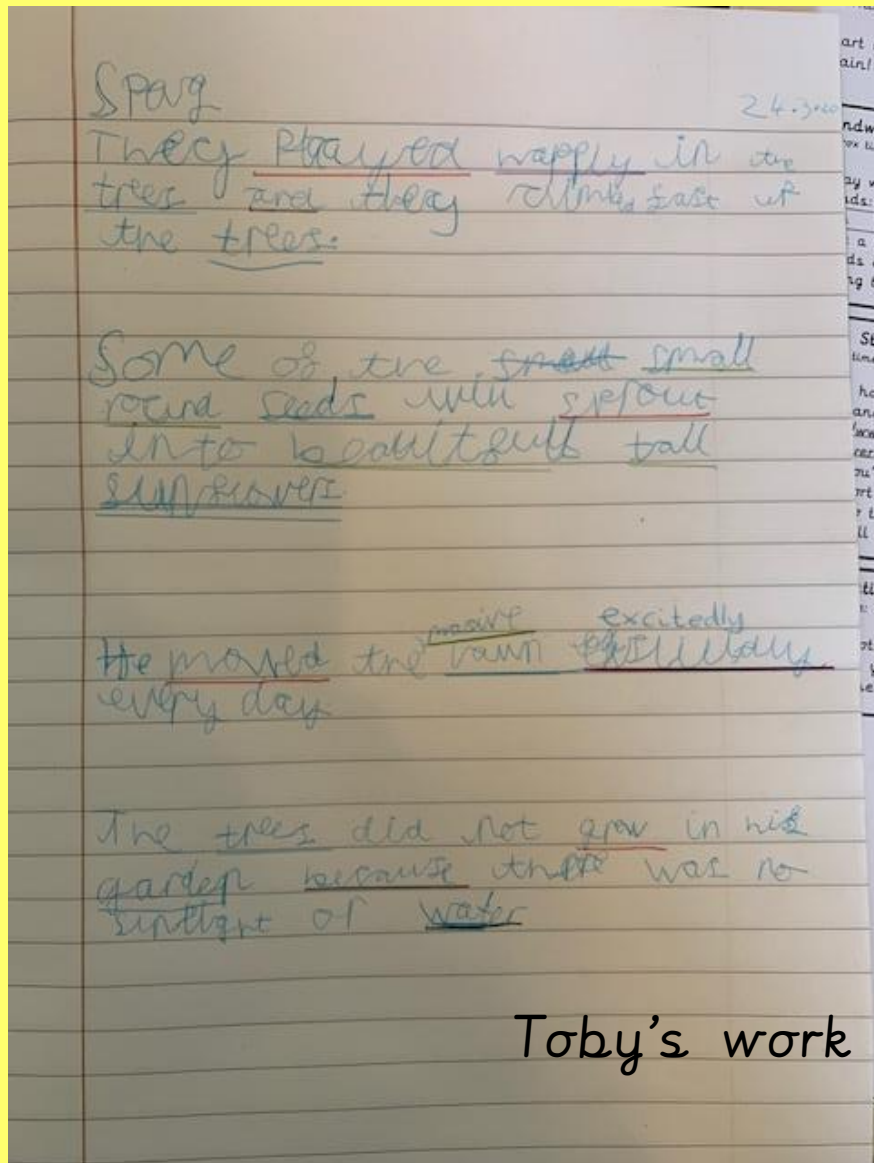 Spag
24.3.2020
They Played happly in the
trees and they climbed fast up
the trees.
Some of the small small
round seeds will sprout
into beautifull tall
sunflowers.
masive excitedly
He mowed the lawn
every day.
The trees did not grow in his
garden because there was no
sunlight or water
Toby's work
art
ain!